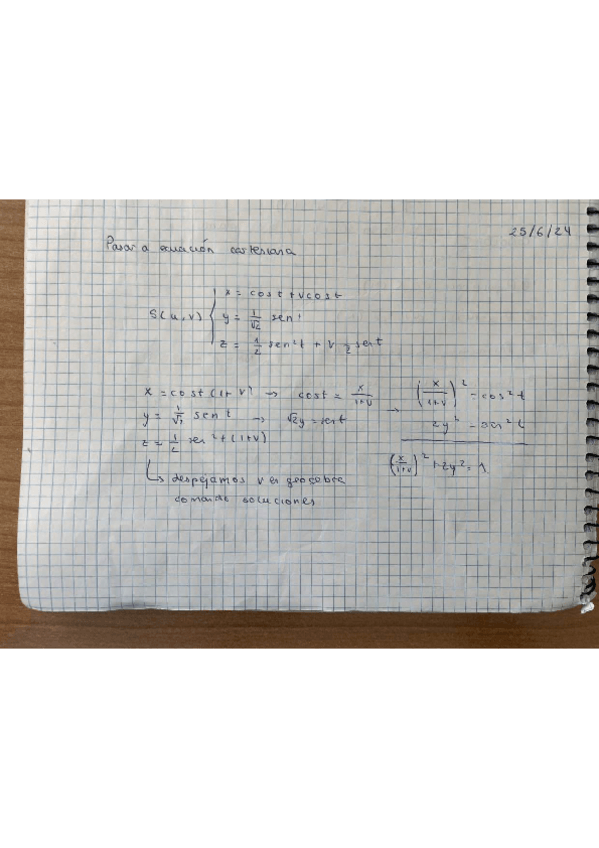 25/6/24
Pasar a ecuación cartesiana
S(u,v) { x = cost + v cost
y = 1/√2 sen t
z = 1/2 sen²t + v 1/2 sen t
x = cost (1+v) → cost = x/(1+v) → (x/(1+v))² = cos²t
y = 1/√2 sen t → √2y = sen t 2y² = sen²t
z = 1/2 sen²t (1+v)
(x/(1+v))² + 2y² = 1
↳ despejamos v en geogebra
comando soluciones